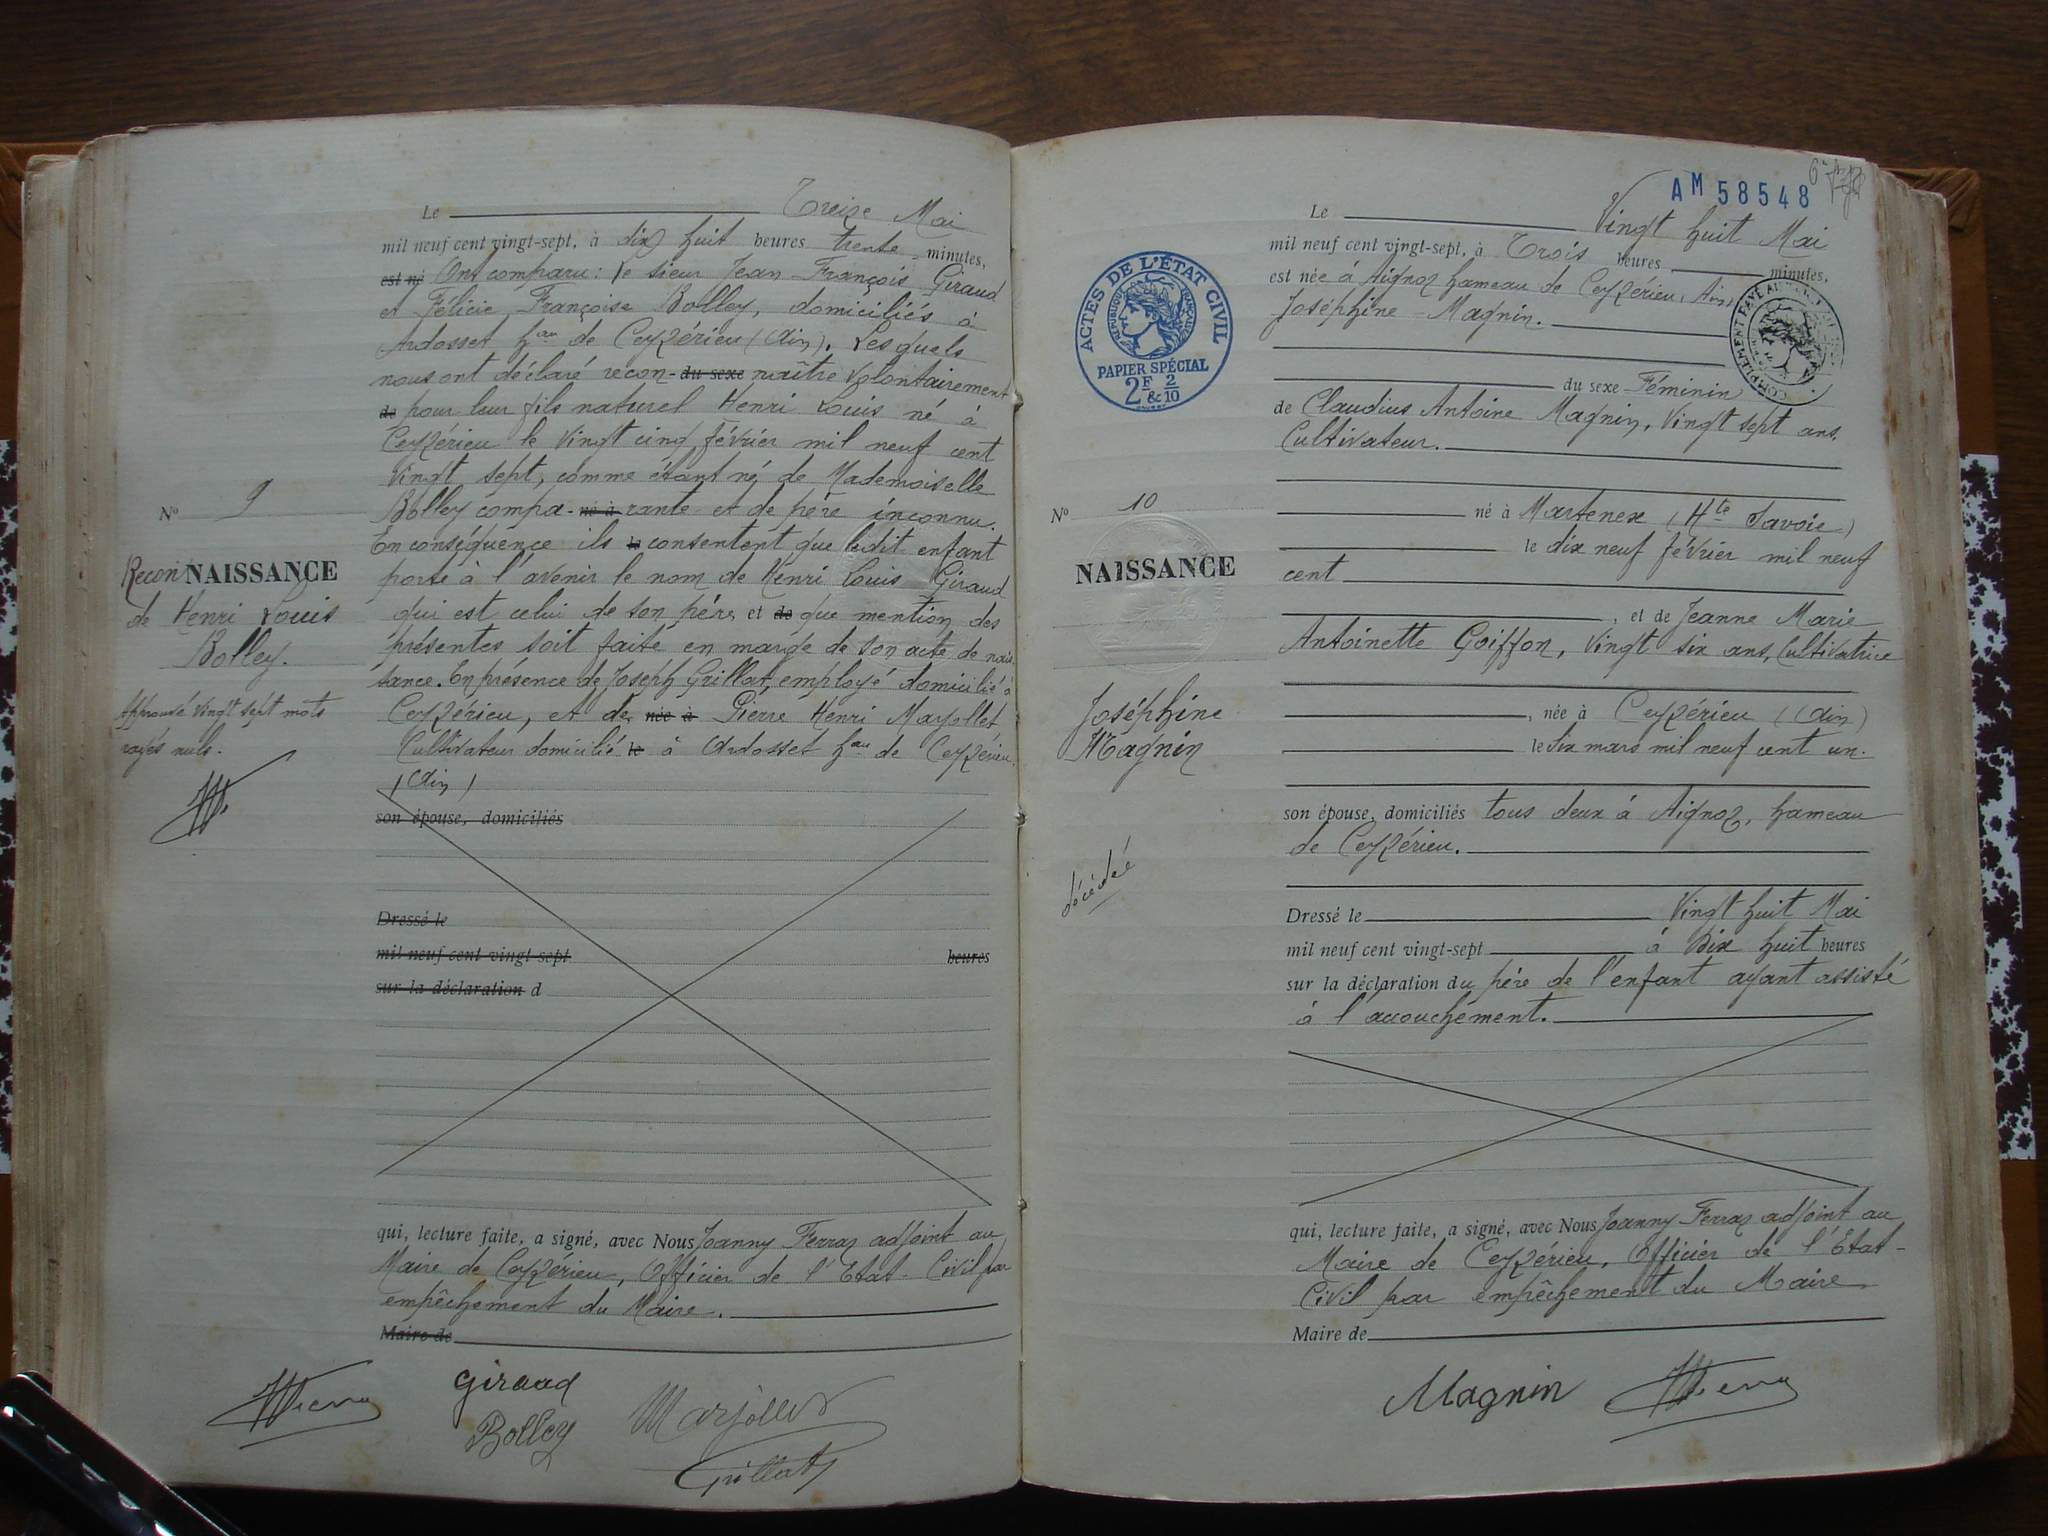 Le Treize Mai
mil neuf cent vingt-sept, à dix huit heures trente minutes,
est né Ont comparu : le sieur Jean-François Giraud
et Félicie Françoise Bolley, domiciliés à
Ardosset hau de Ceyzérieu (Ain). Lesquels
nous ont déclaré recon- du sexe naître volontairement
de pour leur fils naturel Henri Louis né à
Ceyzérieu le vingt cinq février mil neuf cent
vingt sept, comme étant né de Mademoiselle
Bolley compa- né à rante et de père inconnu.
En conséquence ils le consentent que ledit enfant
porte à l'avenir le nom de Henri Louis Giraud
qui est celui de son père, et de que mention des
présentes soit faite en marge de son acte de nais-
sance. En présence de Joseph Grillat, employé domicilié à
Ceyzérieu, et de née à Pierre Henri Marjollet
Cultivateur domicilié le à Ardosset hau de Ceyzérieu
(Ain)
son épouse, domiciliés
Dressé le
mil neuf cent vingt-sept heures
sur la déclaration d
qui, lecture faite, a signé, avec Nous Joanny Ferraz adjoint au
Maire de Ceyzérieu, Officier de l'Etat-Civil par
empêchement du Maire.
Maire de
Giraud
Bolley
Marjollet
Grillat
No 9
Recon NAISSANCE
de Henri Louis
Bolley.
Approuvé vingt sept mots
rayés nuls.
AM 58548
Le Vingt huit Mai
mil neuf cent vingt-sept, à Trois heures minutes,
est née à Aignoz hameau de Ceyzérieu, Ain,
Joséphine Magnin.
du sexe Féminin
de Claudius Antoine Magnin, vingt sept ans,
Cultivateur.
né à Martenex (Hte Savoie)
le dix neuf février mil neuf
cent
, et de Jeanne Marie
Antoinette Goiffon, vingt six ans, Cultivatrice
, née à Ceyzérieu (Ain)
le dix mars mil neuf cent un.
son épouse, domiciliés tous deux à Aignoz, hameau
de Ceyzérieu.
Dressé le Vingt huit Mai
mil neuf cent vingt-sept à Dix huit heures
sur la déclaration du père de l'enfant ayant assisté
à l'accouchement.
qui, lecture faite, a signé, avec Nous Joanny Ferraz adjoint au
Maire de Ceyzérieu, Officier de l'Etat-
Civil par empêchement du Maire.
Maire de
Magnin
ACTES DE L'ÉTAT CIVIL
RÉPUBLIQUE FRANÇAISE
PAPIER SPÉCIAL
2F & 2/10
COMPLÉMENT PAYÉ
No 10
NAISSANCE
Joséphine
Magnin
décédée